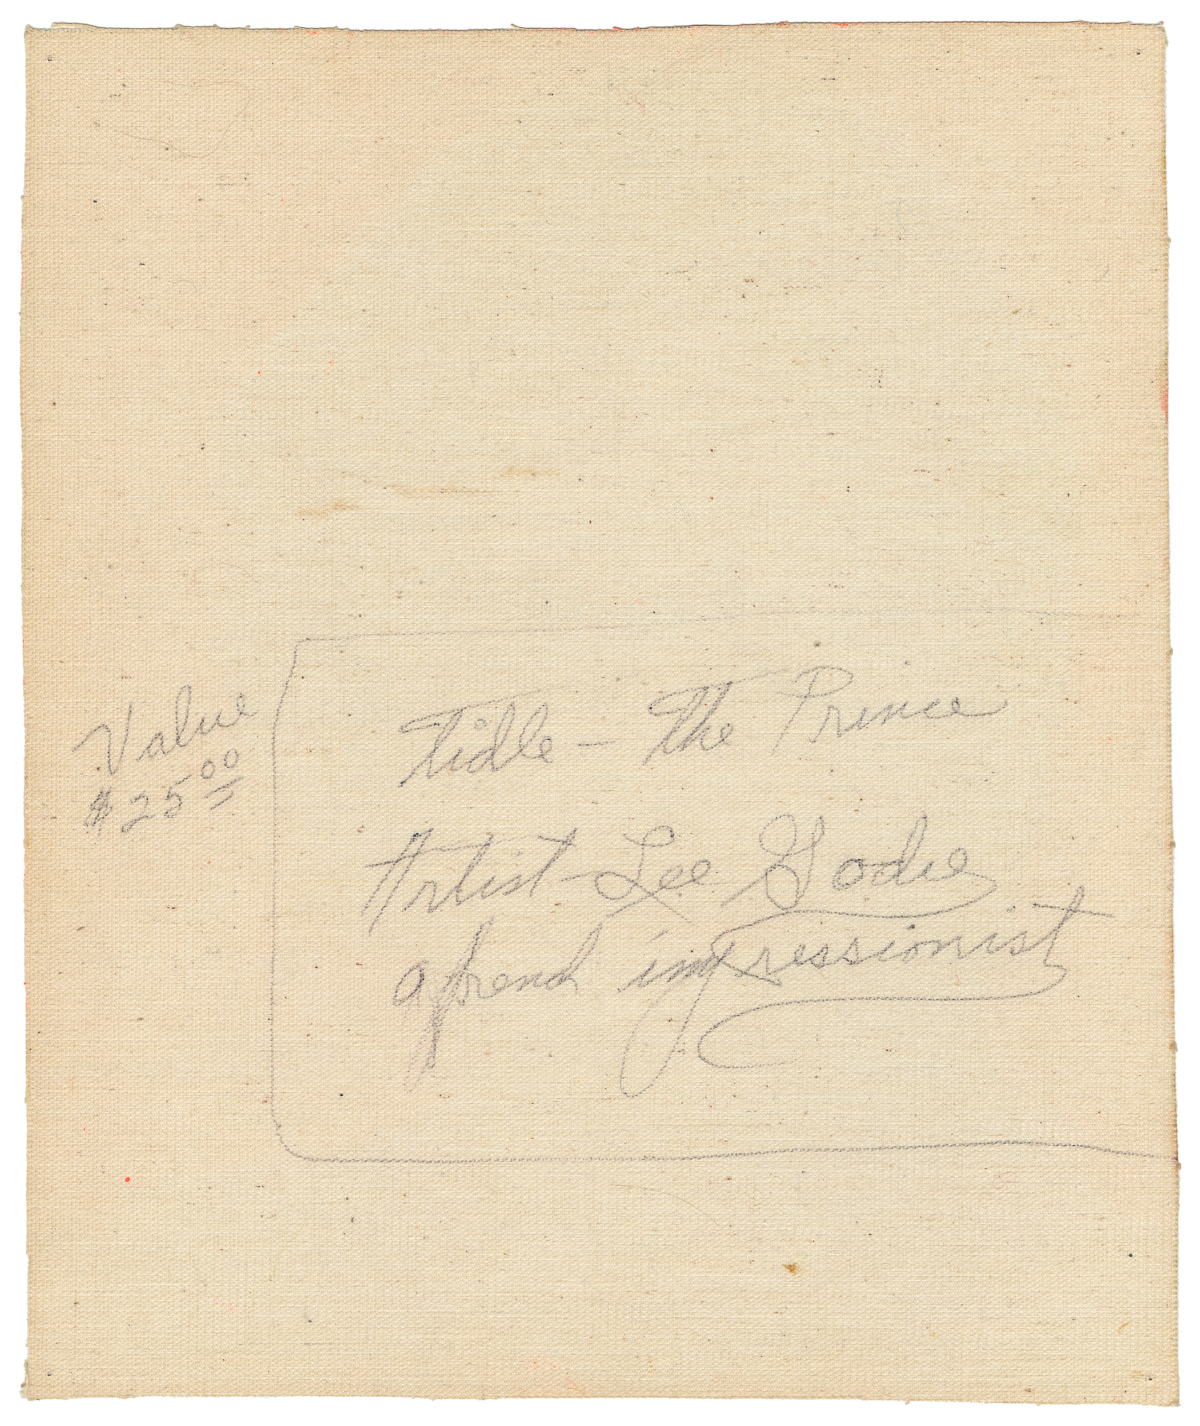 Value
$25.00
Tidle - The Prince
Artist - Lee Godie
a french impressionist